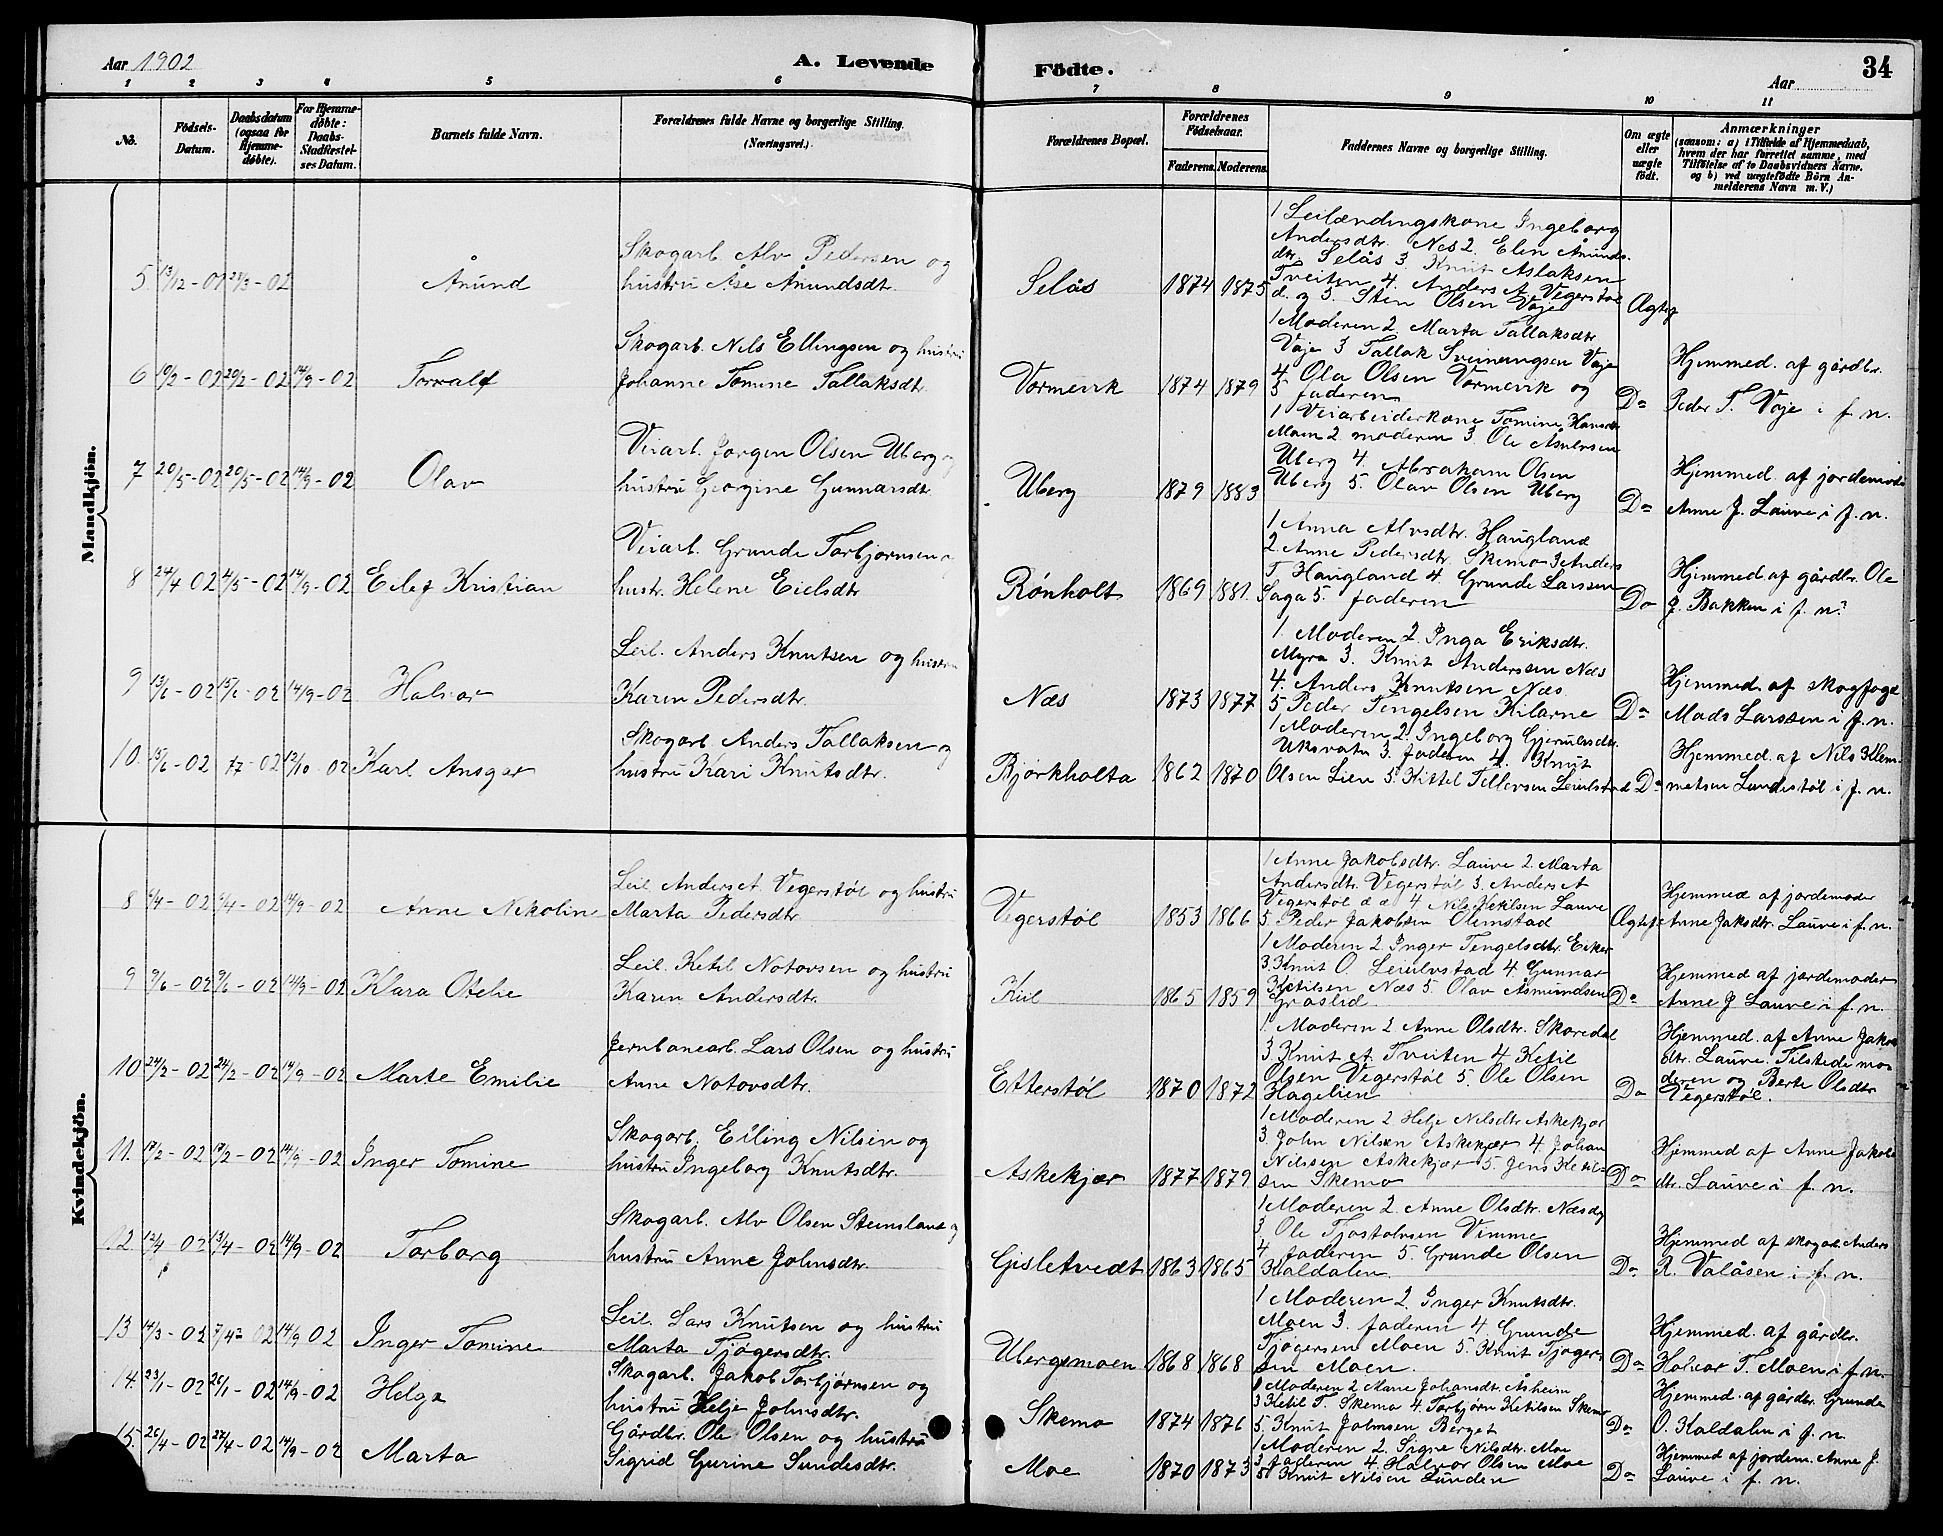 Aar 1902
A. Levende Födte.
Aar
34
1 2 3 4 5 6 7 8 9 10 11
No.
Födsels-Datum.
Daabsdatum (ogsaa for Hjemme-döbte).
For Hjemme-döbte: Daabs-Stadfæstel-ses Datum.
Barnets fulde Navn.
Forældrenes fulde Navne og borgerlige Stilling. (Næringsvei.)
Forældrenes Bopæl.
Forældrenes Födselsaar.
Faderens. Moderens.
Faddernes Navne og borgerlige Stilling.
Om ægte eller uægte födt.
Anmærkninger
(saasom: a) i Tilfælde af Hjemmedaab,
hvem der har forrettet samme, med
Tilföielse af to Daabsvidners Navne.
og b) ved uægtefödte Börn An-
melderens Navn m. V.)
Mandkjön.
5 13/12-01 23/3-02 Ånund
Skogarb. Alv Pedersen og
hustru Åse Ånundsdt.
Selås 1874 1875
1 Leilændingskone Ingeborg
Andersdtr. Næs 2. Elen Ånunds-
dtr. Selås 3. Knut Aslaksen
Tveiten 4. Anders A. Vegerstøl
d. y 5. Sten Olsen Voje
Ægtef
6 19/2-02 20/2-02 14/9-02 Torvalf
Skogarb. Nils Ellingsen og hustru
Johanne Tomine Tallaksdt.
Vormevik 1874 1879
1 Moderen 2. Marta Tallaksdtr.
Voje 3 Tallak Sveinungsen Voje
4. Ola Olsen Vormevik og
5 faderen
Do
Hjemmed. af gårdbr.
Peder T. Voje i f. n.
7 20/5-02 20/5-02 14/9-02 Olav
Veiarb. Jørgen Olsen Uberg og
hustru Georgine Gunnarsdt.
Uberg 1879 1883
1 Veiarbeiderkone Tomine Hansdt.
Moen 2. moderen 3. Ole
Uberg 4. Abraham Olsen
Uberg 5. Olav Olsen Uberg
Do
Hjemmed. af jordemoder
Anne J. Lauve i f. n.
8 24/4 02 4/5-02 14/9-02 Eilef Kristian
Veiarb. Grunde Torbjørnsen og
hustr. Helene Eielsdtr
Rønholt 1869 1881.
1 Anna Alvsdtr. Haugland
2. Anne Pedersdtr. Skemo 3 Anders
T. Haugland 4 Grunde Larssen
Saga 5. faderen
Do
Hjemmed. af gårdbr. Ole
J. Bakken i f. n.
9 13/6-02 15/6-02 14/9-02 Halvor
Leil. Anders Knutsen og hustru
Karen Pedersdtr.
Næs 1873 1877
1. Moderen 2. Inga Eriksdtr.
Myra 3. Knut Anderssen Næs
4. Anders Knutsen Næs
5 Peder Tengelsen Kilarne
Do
Hjemmed. af skogfoged
Mads Larssen i f. n.
10. 15/6-02 -02 12/10-02 Karl Ansgar
Skogarb. Anders Tallaksen og
hustru Kari Knutsdtr.
Bjørkholta 1862 1870
1 Moderen 2. Ingeborg
Uksvatn 3. faderen 4. Knut
Olsen Lien 5. Kittel Tellevsen
Do
Hjemmed. af Nils Klem-
metsen Lundestøl i f. n.
Kvindekjön.
8 4/4-02 4/4-02 14/9-02 Anne Nekoline
Leil. Anders A. Vegerstøl og hustru
Marta Pedersdtr
Vegerstøl 1853 1866
1 Anne Jakobsdtr. Lauve 2. Marta
Andersdtr. Vegerstøl 3. Anders A
Vegerstøl d. æ. 4 Nils Ketilsen Lauve
5. Peder Jakobsen Olimstad
Ægtef.
Hjemmed af jordemoder
Anne Jaksdtr. Lauve i f. n.
9 9/6-02 9/6-02 14/9-02 Klara Otelie
Leil. Ketil Notovsen og hustru
Karen Andersdtr.
Kiil 1865 1859
1 Moderen 2 Inger Tengelsdtr. Eiker
3. Knut O. Leiulvstad 4 Gunnar
Ketilsen Næs 5. Olav Asmundsen
Graslid.
Do
Hjemmed af jordemoder
Anne J Lauve i f. n.
10 24/2-02 24/2-02 14/9-02 Marte Emilie
Jernbanearb. Lars Olsen og hustru
Anne Notovsdtr.
Etterstøl 1870 1872
1. Moderen 2 Anne Olsdtr. Skaredal
3 Knut A. Tveiten 4 Ketil
Olsen Vegerstøl 5. Ole Olsen
Hagelien
Do
Hjemmed. af Anne Jakobs
dtr. Lauve. Tilstede mo-
deren og Berte Olsdtr
Vegerstøl.
11. 17/2-02 17/2-02 14/9-02 Inger Tomine
Skogarb. Elling Nilsen og
hustru Ingeborg Knutsdtr.
Askekjær 1877 1879
1 Moderen 2 Helje Nilsdtr. Askekjær
3. John Nilsen Askekjær 4 Johan
Nilssen Askekjær 5. Jens Ketil-
sen Skemo
Do
Hjemmed af Anne Jakobs
dtr. Lauve i f. n.
12 12/4-02 13/4-02 14/9-02 Torborg
Skogarb. Alv Olsen Steinsland og
hustru Anne Johnsdtr.
Gisletvedt 1863 1865
1 Moderen 2. Anne Olsdtr. Næsdy
3 Ole Tjostolvsen Vimme
4. faderen 5. Grunde Olsen
Kaldalen.
Do
Hjemmed af skogarb. Anders
R. Valåsen i f. n.
13 14/3-02 7/4-02 14/9 02 Inger Tomine
Leil. Lars Knutsen og hustru
Marta Tjøgersdtr.
Ubergsmoen 1868 1868
1 Moderen 2. Inger Knutsdtr.
Moen 3. faderen 4 Grunde
Tjøgersen Moen 5. Knut Tjøger-
sen Moen.
Do
Hjemmed. af gårdbr.
Halvor T. Moen i f. n.
14. 23/1-02 26/1-02 14/9-02 Helga
Skogarb. Jakob Torbjørnsen og
hustru Helje Johnsdtr.
Skemo 1874 1876
1 Moderen 2 Marie Johansdt. Åsheim
3 Ketil T. Skemo 4 Torbjørn Ketilsen Skemo
5. Knut Johnsen Berget
Do
Hjemmed. af gårdbr. Grunde
O. Kaldalen i f. n.
15. 26/4-02 27/4-02 14/9-02 Marta
Gårdbr. Ole Olsen og hustru
Sigrid Gurine Sundesdtr.
Moe 1870 1873
1 Moderen 2. Signe Nilsdtr. Moe
3 faderen 4. Halvor Olsen Moe
5 Knut Nilsen Lunden
Do
Hjemmed af jordem. Anne J.
Lauve i f. n.